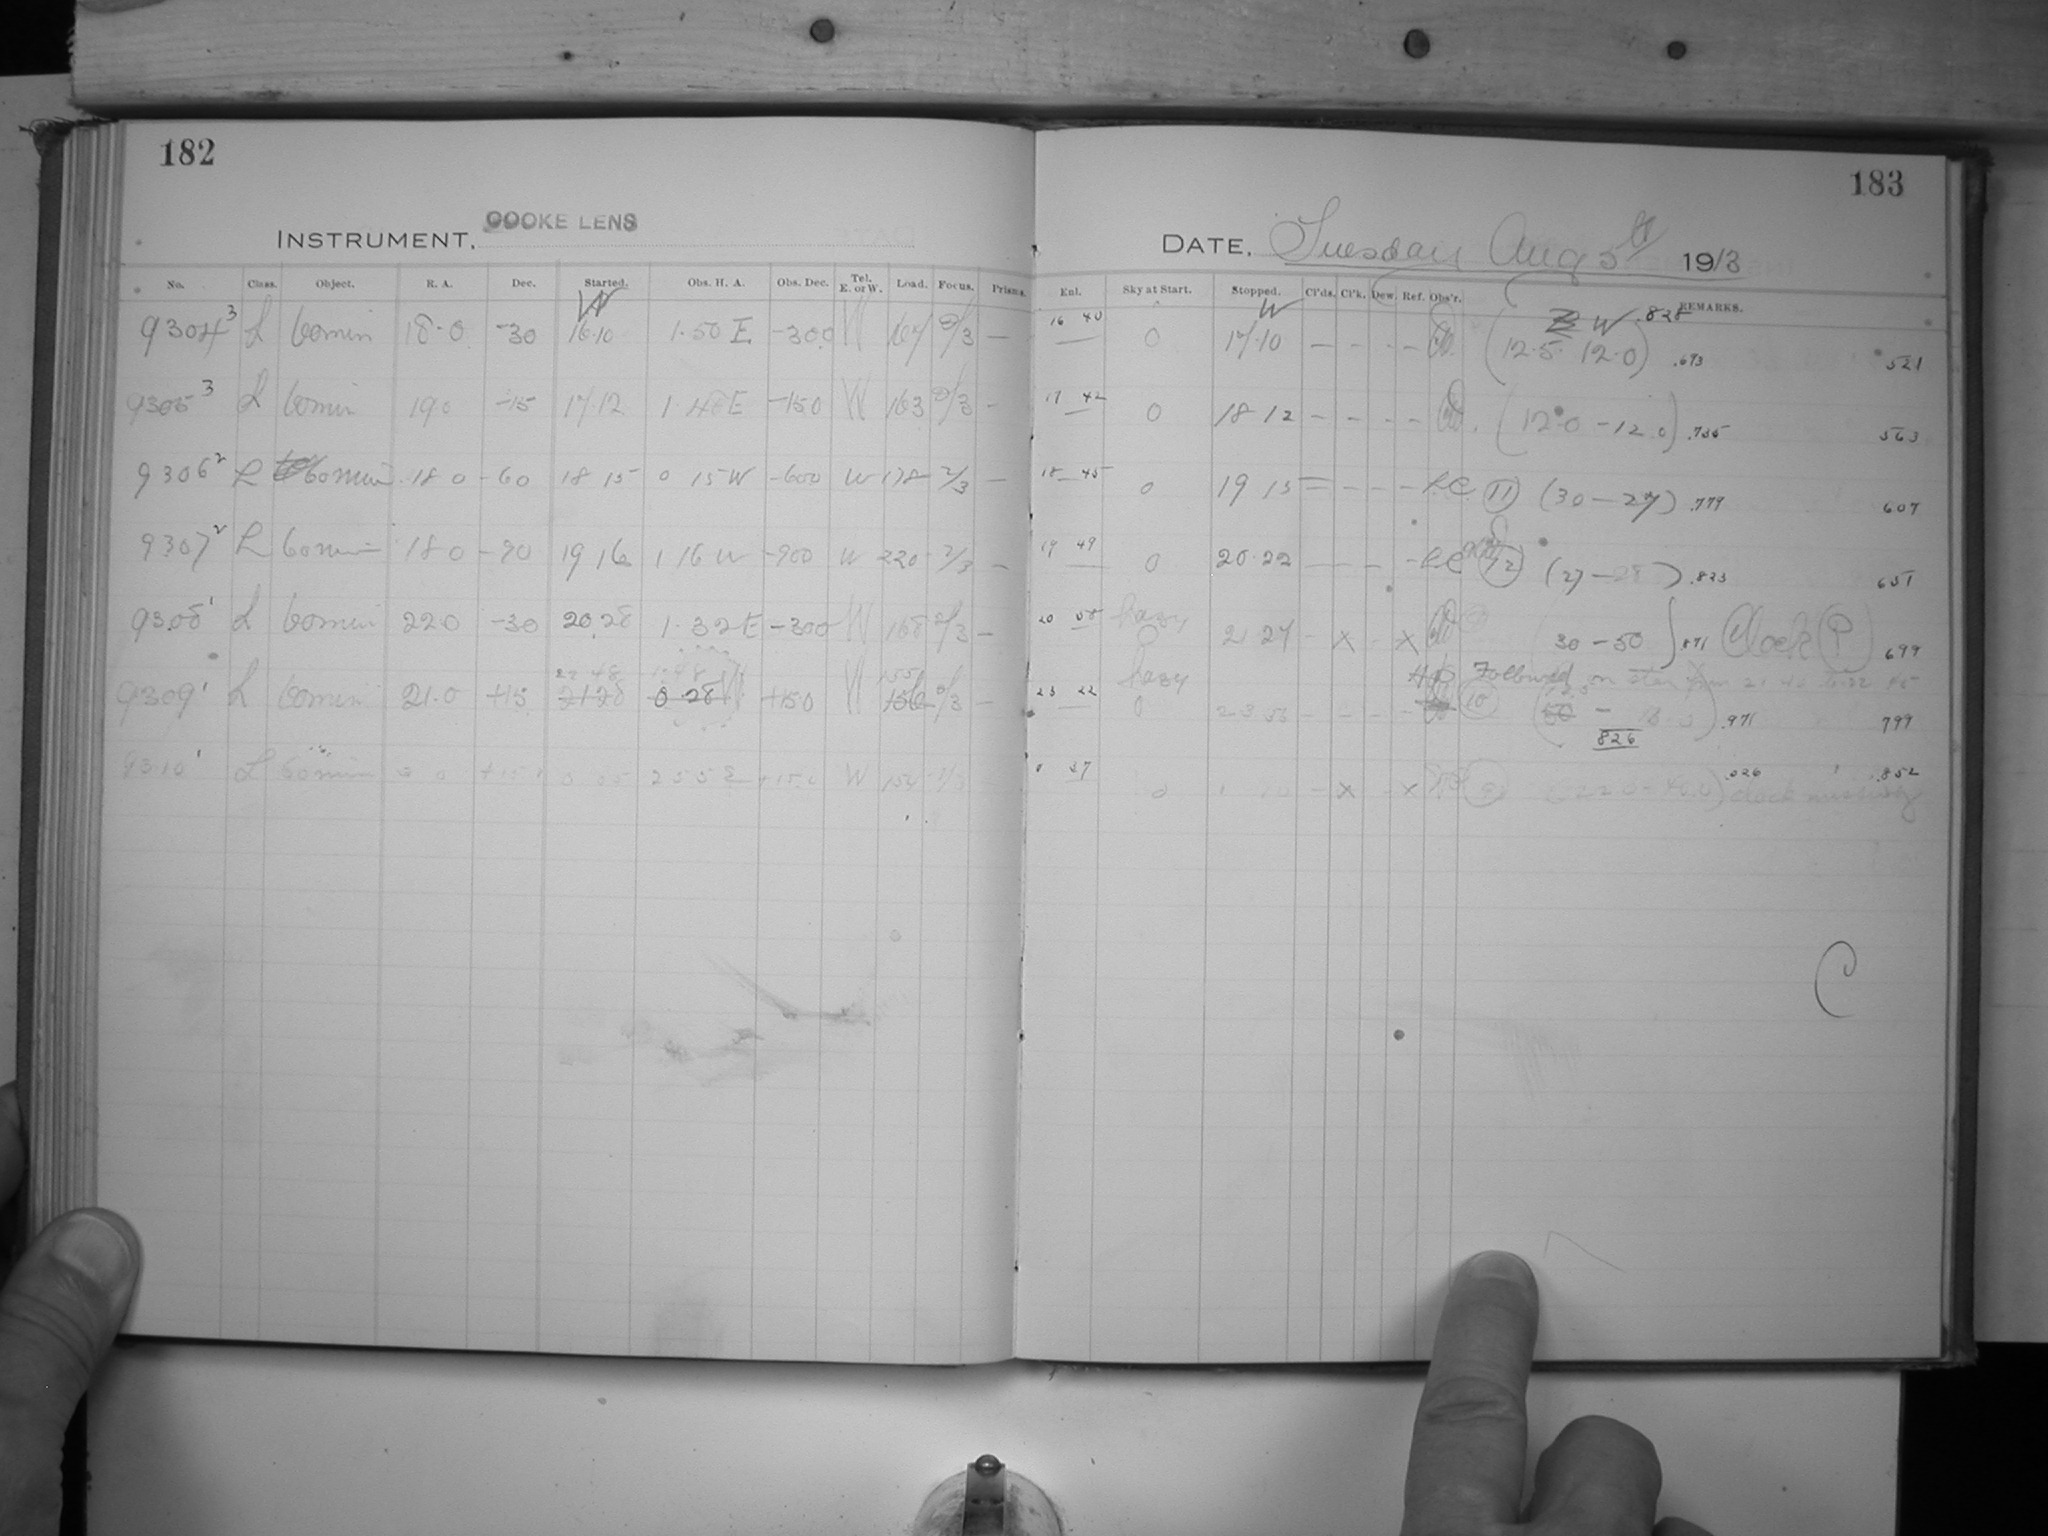 182
INSTRUMENT, COOKE LENS
No. Class. Object. R. A. Dec. Started. Obs. H. A. Obs. Dec. Tel. E. or W. Load. Focus. Prisms.
W
9304 3 L 60 min 18.0 -30 16.10 1.50 E -300 W 167 2/3 —
9305 3 L 60 min 190 -15 17.12 E -150 W 163 2/3 -
9306 2 L 60 min 18 0 -60 18 15 0 15 W -600 W 178 2/3 —
9307 2 L 60 min 18 0 -90 19 16 1 16 W -900 W 220 2/3 —
9308 1 L 60 min 220 -30 20.28 1.32 E -300 W 168 2/3 —
22 48 1.48 155
9309 1 L 60 min 21.0 +15 21 28 0 28 W +150 W 2/3 —
9310 1 L 60 min 0 +15 2 55 E W 154
183
DATE, Tuesday Aug 5th 1913
Enl. Sky at Start. Stopped. Cl'ds. Cl'k. Dew. Ref. Obs'r. REMARKS.
W W .828
16 40 0 17.10 — - - - (12.5. 12.0) .693 521
17 42 0 18 12 — - - - (12.0 - 12.0) .735 563
18 45 0 19 15 = - - - L.C. 11 (30 — 27) .779 607
19 49 0 20.22 — — - - L.C. 12 (27 — 28) .823 651
20 58 hazy 0 21 27 - X - X 30 - 50 ) .871 Clock (P) 699
hazy Followed on star from 21
23 22 0 23 - - - - 10 (50 - ) .971 799
826
0 27 0 1 - X - X (22.0 - 40.0) .026 clock missing .852